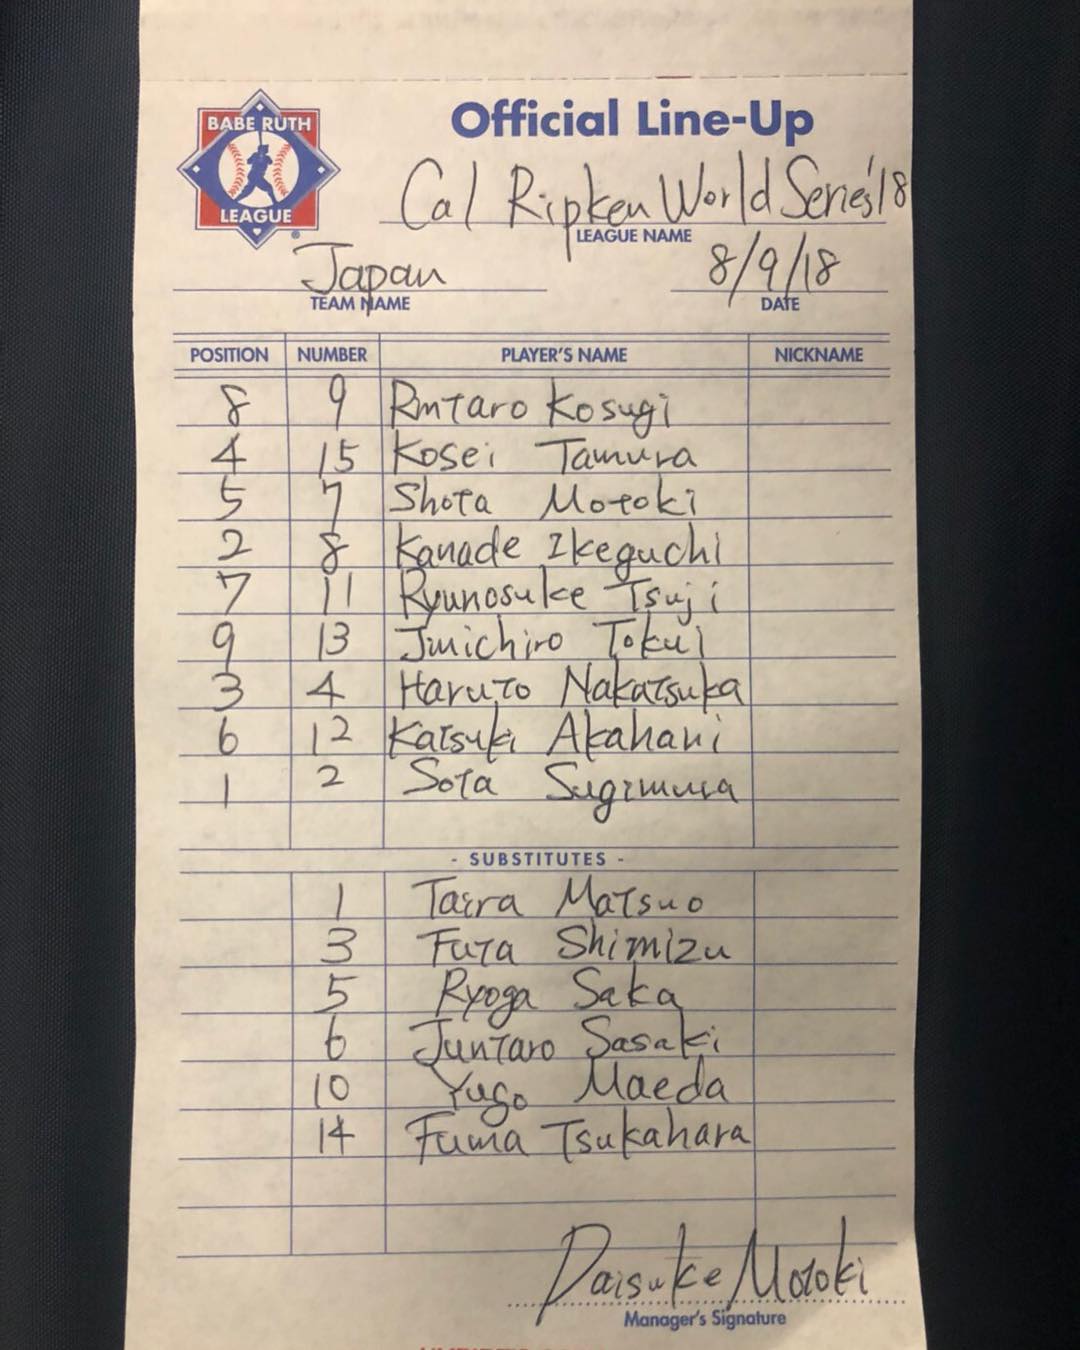 BABE RUTH
LEAGUE
®
Official Line-Up
Cal Ripken World Series '18
LEAGUE NAME
Japan 8/9/18
TEAM NAME DATE
POSITION NUMBER PLAYER'S NAME NICKNAME
8 9 Rintaro Kosugi
4 15 Kosei Tamura
5 7 Shota Motoki
2 8 Kanade Ikeguchi
7 11 Ryunosuke Tsuji
9 13 Jinichiro Tokui
3 4 Haruto Nakatsuka
6 12 Katsuki Akahani
1 2 Sota Sugimura
- SUBSTITUTES -
1 Taira Matsuo
3 Futa Shimizu
5 Ryoga Saka
6 Juntaro Sasaki
10 Yugo Maeda
14 Fuma Tsukahara
Daisuke Motoki
Manager's Signature